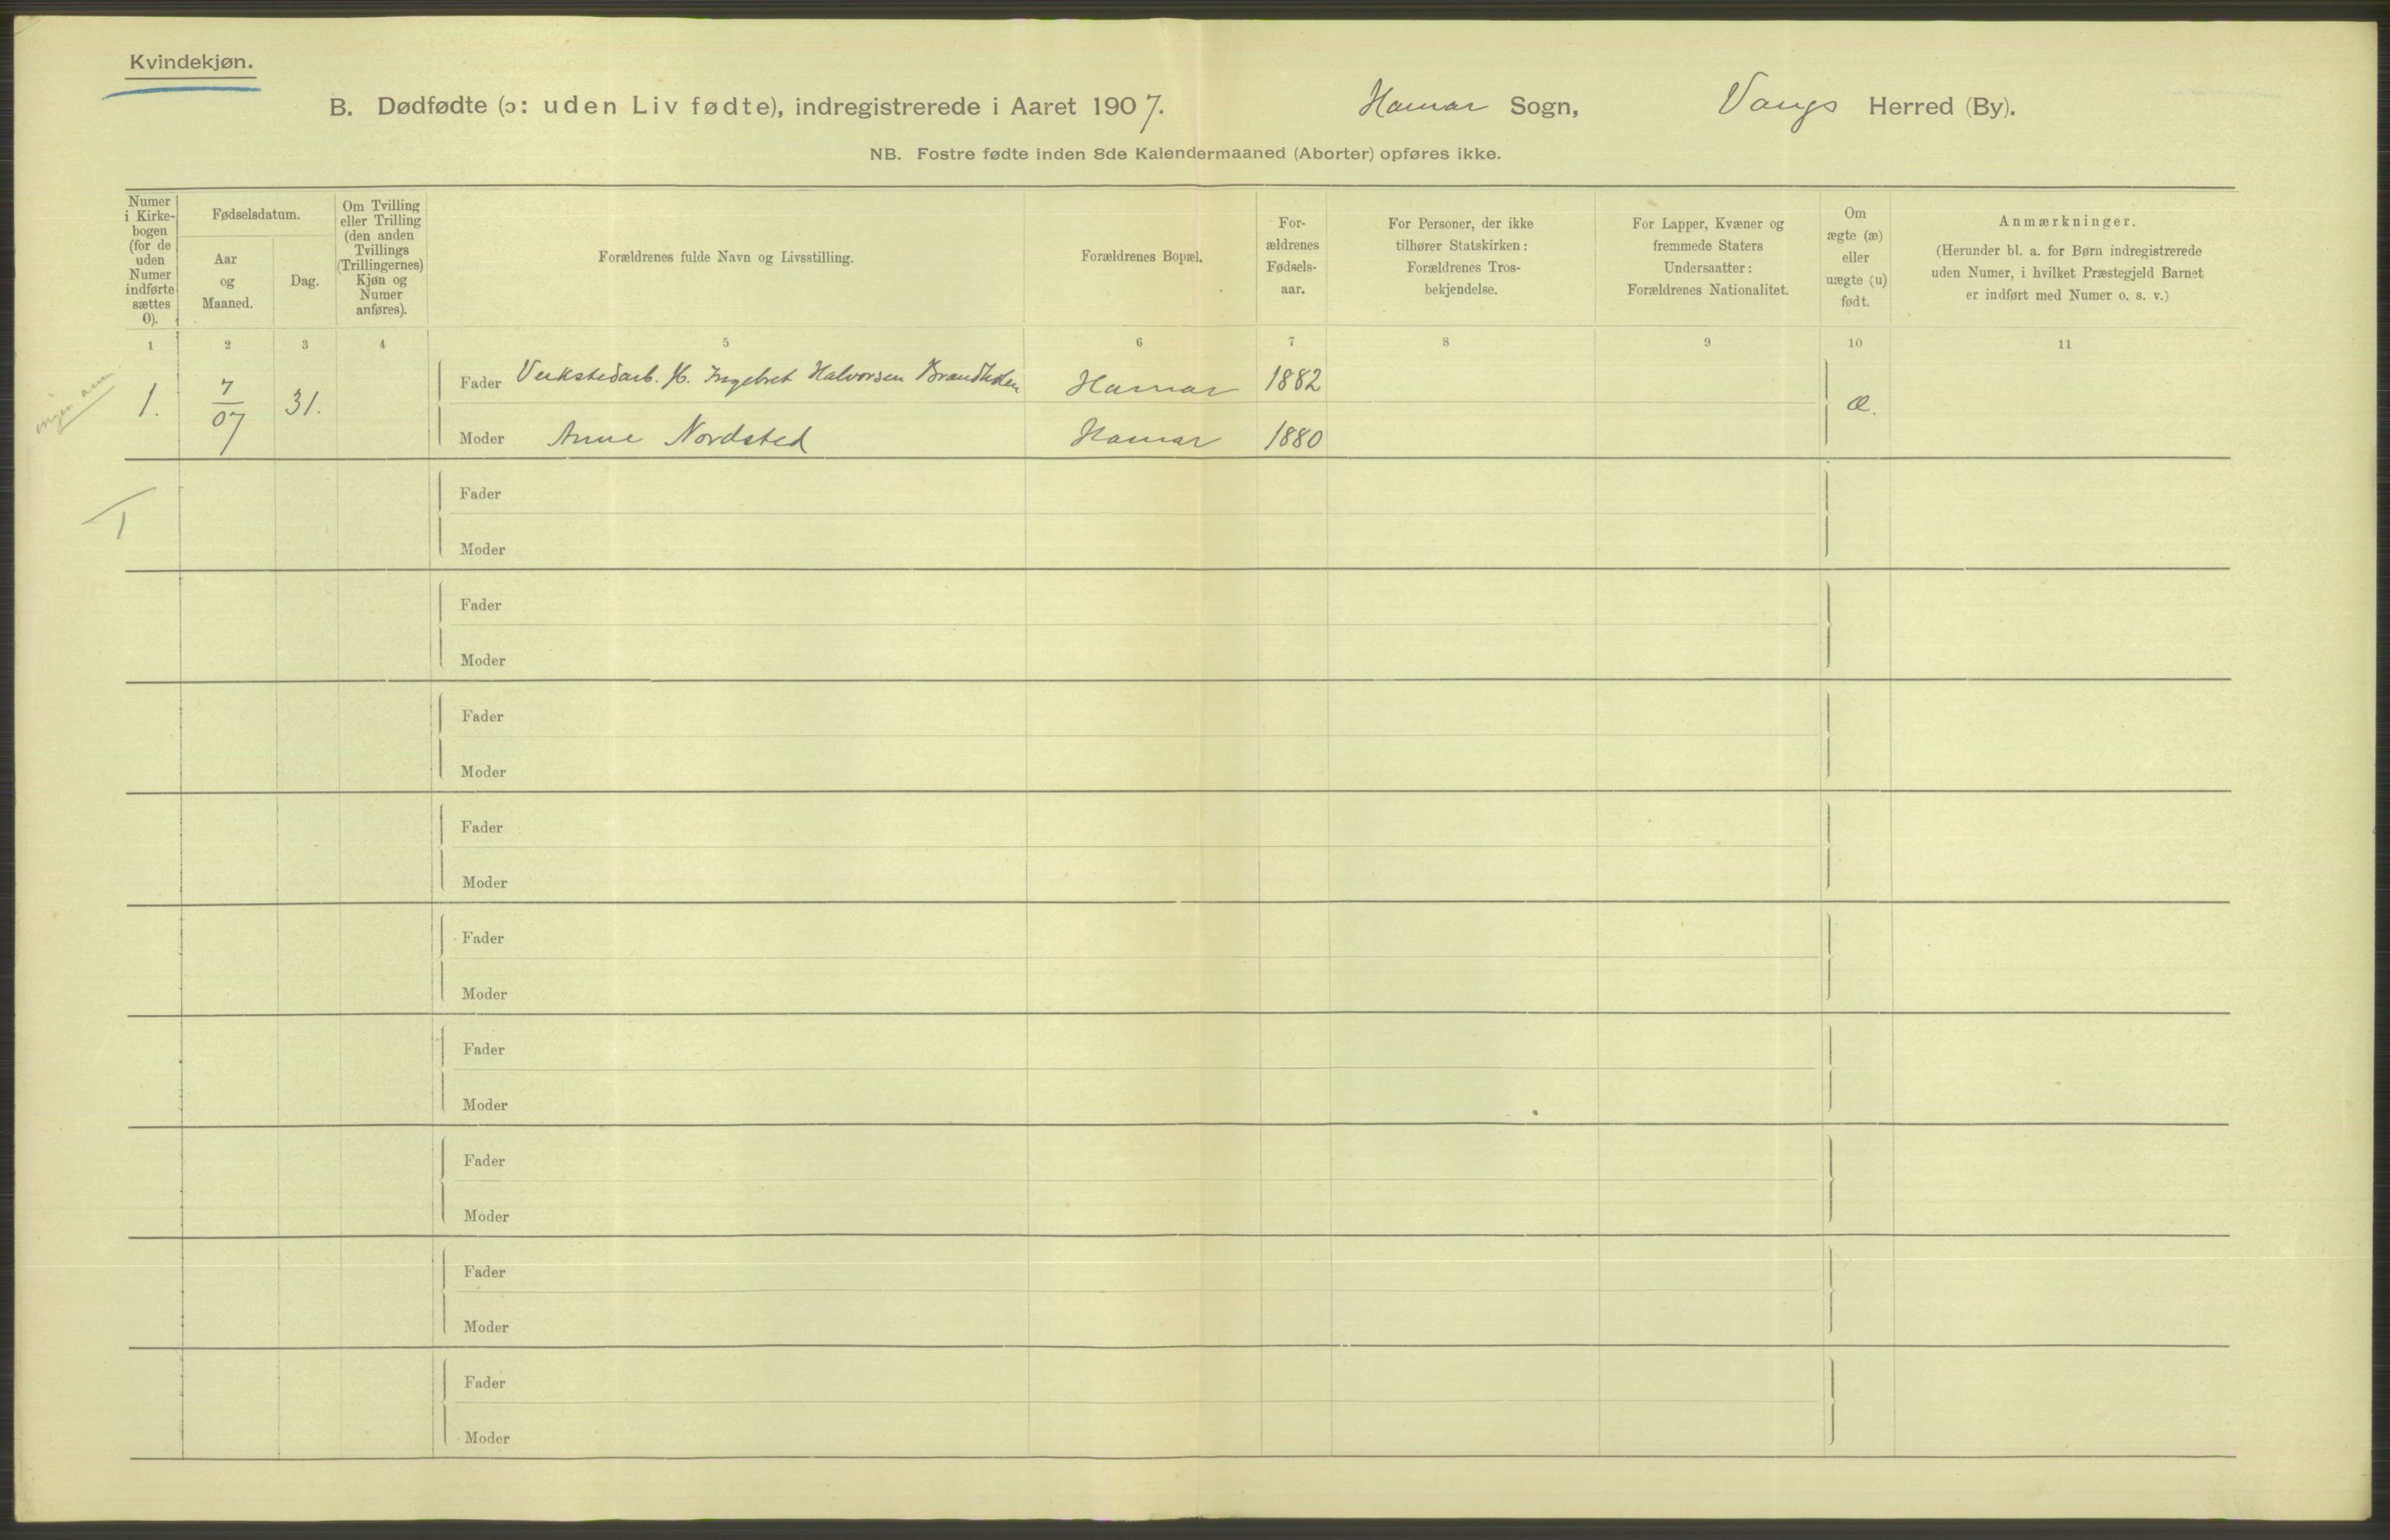 Kvindekjøn.
B. Dødfødte (ɔ: uden Liv fødte), indregistrerede i Aaret 1907. Hamar Sogn, Vangs Herred (By).
NB. Fostre fødte inden 8de Kalendermaaned (Aborter) opføres ikke.
Numer i Kirke-bogen (for de uden Numer indførte sættes 0).
Fødselsdatum.
Aar og Maaned.
Dag.
Om Tvilling eller Trilling (den anden Tvillings (Trillingernes) Kjøn og Numer anføres).
Forældrenes fulde Navn og Livsstilling.
Forældrenes Bopæl.
For-ældrenes Fødsels-aar.
For Personer, der ikke tilhører Statskirken: Forældrenes Tros-bekjendelse.
For Lapper, Kvæner og fremmede Staters Undersaatter: Forældrenes Nationalitet.
Om ægte (æ) eller uægte (u) født.
Anmærkninger.
(Herunder bl. a. for Børn indregistrerede uden Numer, i hvilket Præstegjeld Barnet er indført med Numer o. s. v.)
1 2 3 4 5 6 7 8 9 10 11
1. 7/07 31. Fader Verkstedarb. H. Ingebret Halvorsen Hamar 1882 æ.
Moder Anne Nordsted Hamar 1880
Fader
1
Moder
Fader
Moder
Fader
Moder
Fader
Moder
Fader
Moder
Fader
Moder
Fader
Moder
Fader
Moder
Fader
Moder